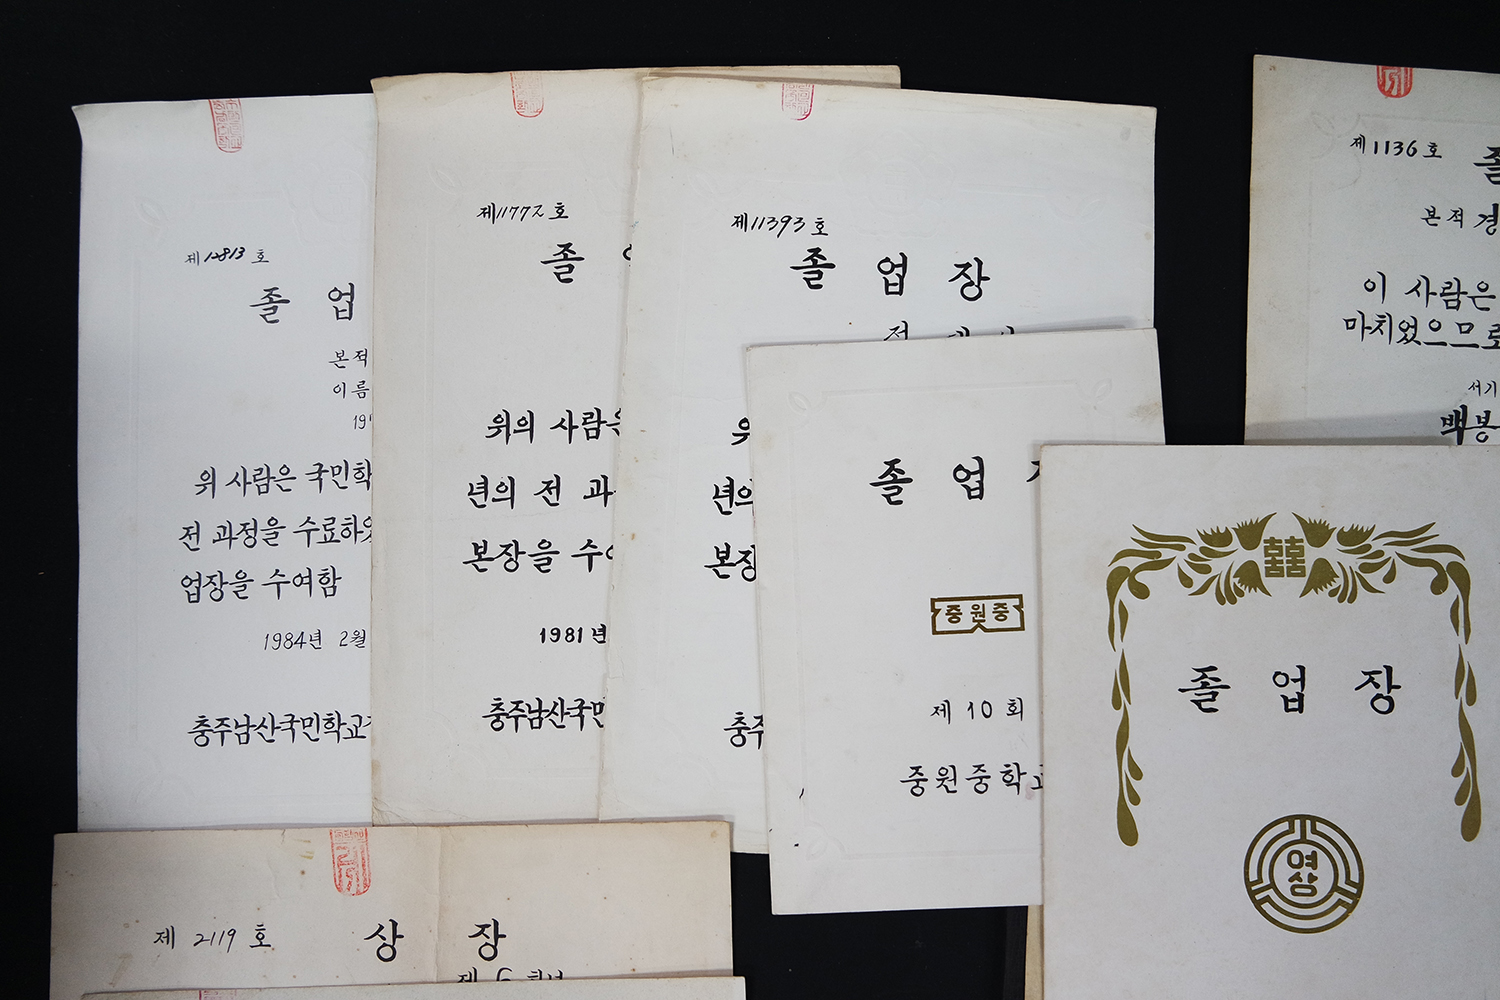 제12813호
졸 업
본적
이름
위 사람은 국민학
전 과정을 수료하였
업장을 수여함
1984년 2월
충주남산국민학교
제11772호
졸
위의 사람은
년의 전 과
본장을 수
1981년
충주남산국민
제11393호
졸 업 장
위
년의
본장
충주
졸 업
중원중
제10회
중원중학교
제1136호
졸
본적 경
이 사람은
마치었으므로
서기
백봉
囍
졸 업 장
영상
제 2119 호
상 장
제 6 학년